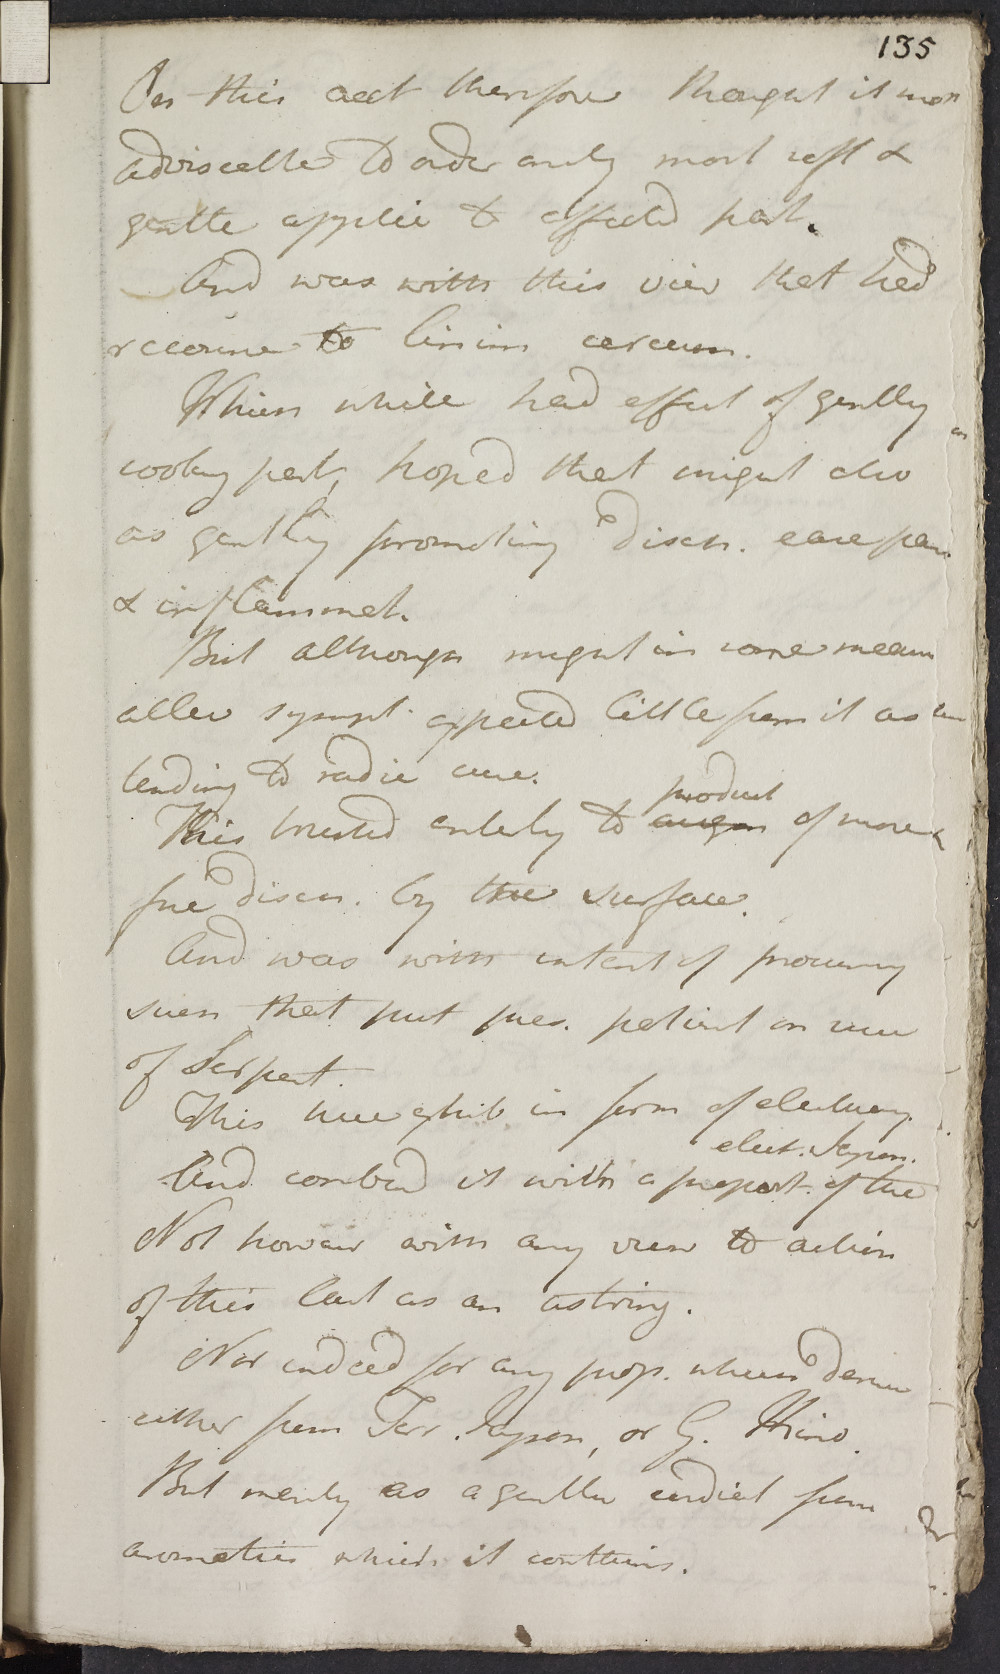 135
On this acct therefore thought it most
adviseable to order only most soft &
gentle applic to affected part.
And was with this view that had
recourse to linim cereum.
Which while had effect of gently
cooling part, hoped that might also
as gently promoting disch. ease pain
& inflammat.
But although might in some measure
allev sympt. expected little from it as
tending to radic cure.
This trusted entirely to product of more
free disch. by the surface.
And was with intent of procuring
such that put pres. patient on use
of Serpent.
This have exhib in form of electuary.
And combind it with a preport. of the elect. Japon.
Not however with any view to action
of this last as an astring.
Nor indeed for any prop. which derive
either from Terr. Japon, or G. Kino.
But merely as a gentle cordial from
aromatics which it contains.